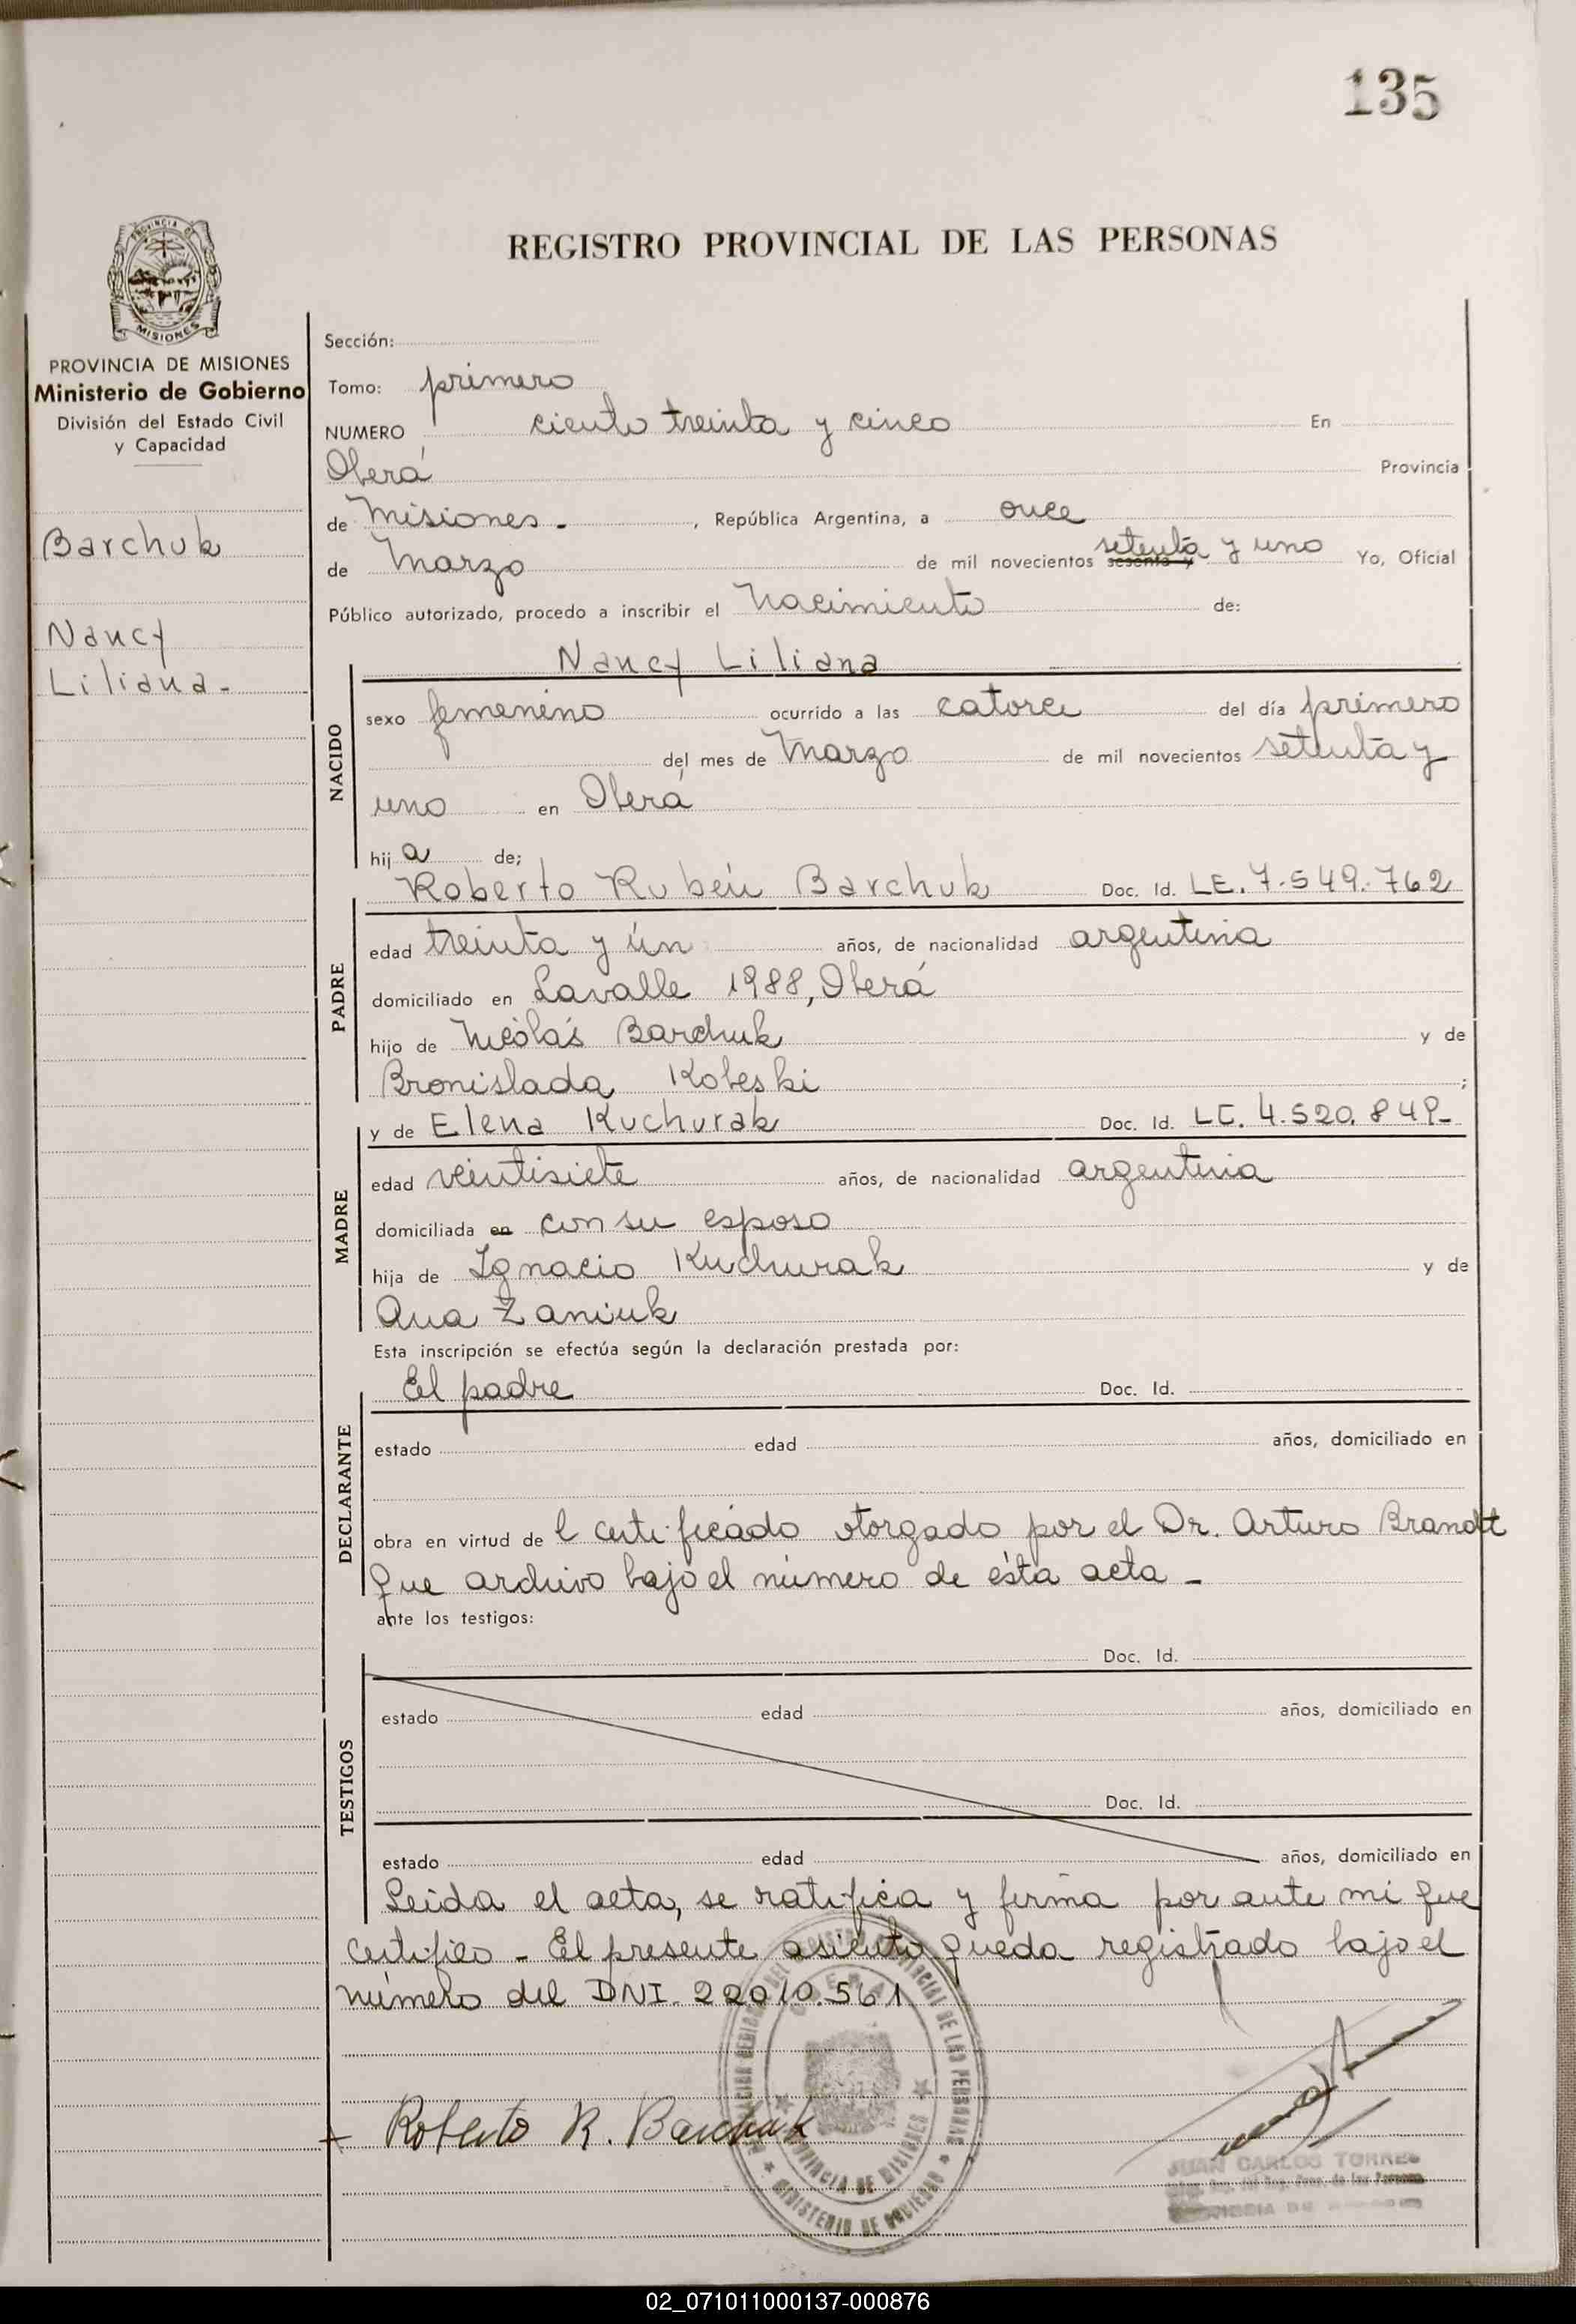 135
PROVINCIA DE
MISIONES
REGISTRO PROVINCIAL DE LAS PERSONAS
PROVINCIA DE MISIONES
Ministerio de Gobierno
División del Estado Civil
y Capacidad
Barchuk
Nancy
Liliana.-
Sección:
Tomo: primero
NUMERO ciento treinta y cinco En
Oberá Provincia
de Misiones - , República Argentina, a once
de Marzo de mil novecientos sesenta y setenta y uno Yo, Oficial
Público autorizado, procedo a inscribir el Nacimiento de:
Nancy Liliana
NACIDO
sexo femenino ocurrido a las catorce del día primero
del mes de Marzo de mil novecientos setenta y
uno en Oberá
hij a de;
Roberto Rubén Barchuk Doc. Id. LE. 7.549.762
PADRE
edad treinta y ún años, de nacionalidad argentina
domiciliado en Lavalle 1988, Oberá
hijo de Nicolás Barchuk y de
Bronislada Koleski ;
y de Elena Kuchurak Doc. Id. LC. 4.520.849-
MADRE
edad veintisiete años, de nacionalidad argentina
domiciliada en con su esposo
hija de Ignacio Kuchurak y de
Ana Zaniuk
Esta inscripción se efectúa según la declaración prestada por:
El padre Doc. Id.
DECLARANTE
estado edad años, domiciliado en
obra en virtud de l certificado otorgado por el Dr. Arturo Brandt
que archivo bajo el número de ésta acta -
ante los testigos:
Doc. Id.
TESTIGOS
estado edad años, domiciliado en
Doc. Id.
estado edad años, domiciliado en
Leida el acta, se ratifica y firma por ante mi que
certifico - El presente asiento queda registrado bajo el
número del DNI. 22.010.561
Roberto R. Barchuk
PROVINCIA DE MISIONES
MINISTERIO DE GOBIERNO
JUAN CARLOS TORRES
02_071011000137-000876